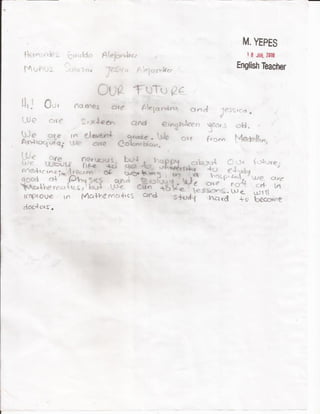 M. YEPES
1 8 JUL 2008
English Teacher
Alejandra
OUR FUTURE
Hi! Our names are Alejandra and Jessica.
We are sixteen and eighteen years old.
We are in eleventh grade. We are from Medellin,
Antioquia; We are Colombian.
We are nervous but happy about Our future,
We would like to go to university to study
medicine, dream of working in a hospital, We are
good at Physics and We are not at in
Mathematics, but We can take lessons. We will
improve in Mathematics and study hard to become
doctors.